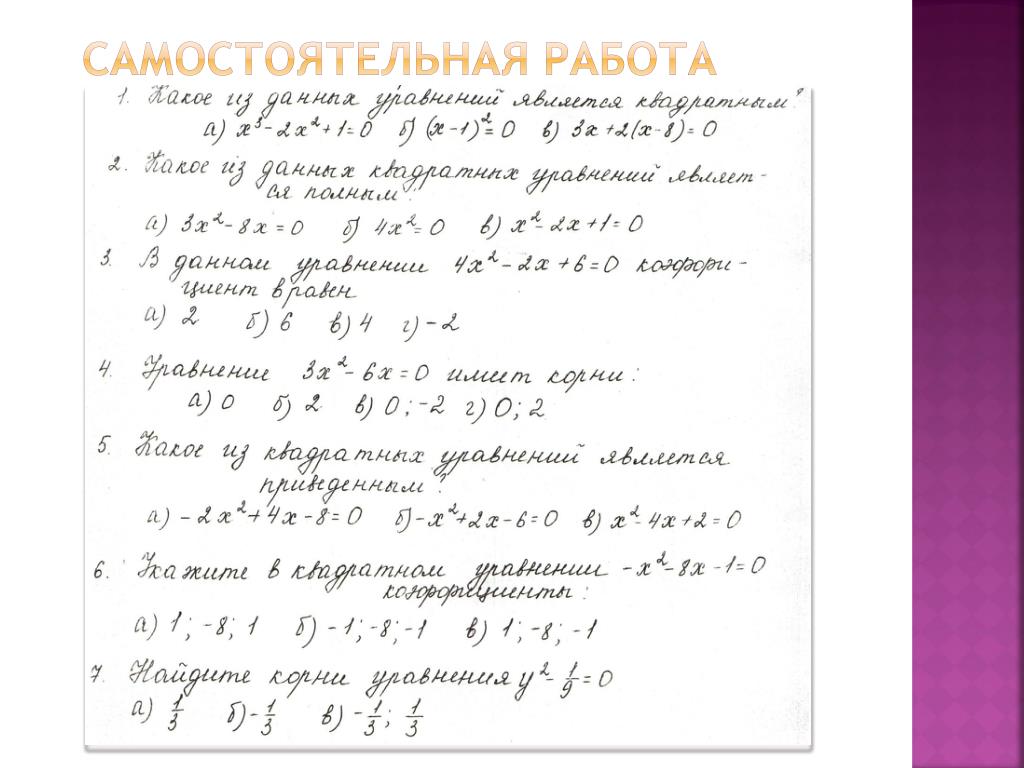 САМОСТОЯТЕЛЬНАЯ РАБОТА
1. Какое из данных уравнений является квадратным?
а) x³ - 2x² + 1 = 0 б) (x - 1)² = 0 в) 3x + 2(x - 8) = 0
2. Какое из данных квадратных уравнений являет-
ся полным?
а) 3x² - 8x = 0 б) 4x² = 0 в) x² - 2x + 1 = 0
3. В данном уравнении 4x² - 2x + 6 = 0 коэффи-
циент в равен
а) 2 б) 6 в) 4 г) -2
4. Уравнение 3x² - 6x = 0 имеет корни:
а) 0 б) 2 в) 0; -2 г) 0; 2
5. Какое из квадратных уравнений является
приведенным?
а) -2x² + 4x - 8 = 0 б) -x² + 2x - 6 = 0 в) x² - 4x + 2 = 0
6. Укажите в квадратном уравнении -x² - 8x - 1 = 0
коэффициенты:
а) 1; -8; 1 б) -1; -8; -1 в) 1; -8; -1
7. Найдите корни уравнения y² - 1/9 = 0
а) 1/3 б) -1/3 в) -1/3; 1/3